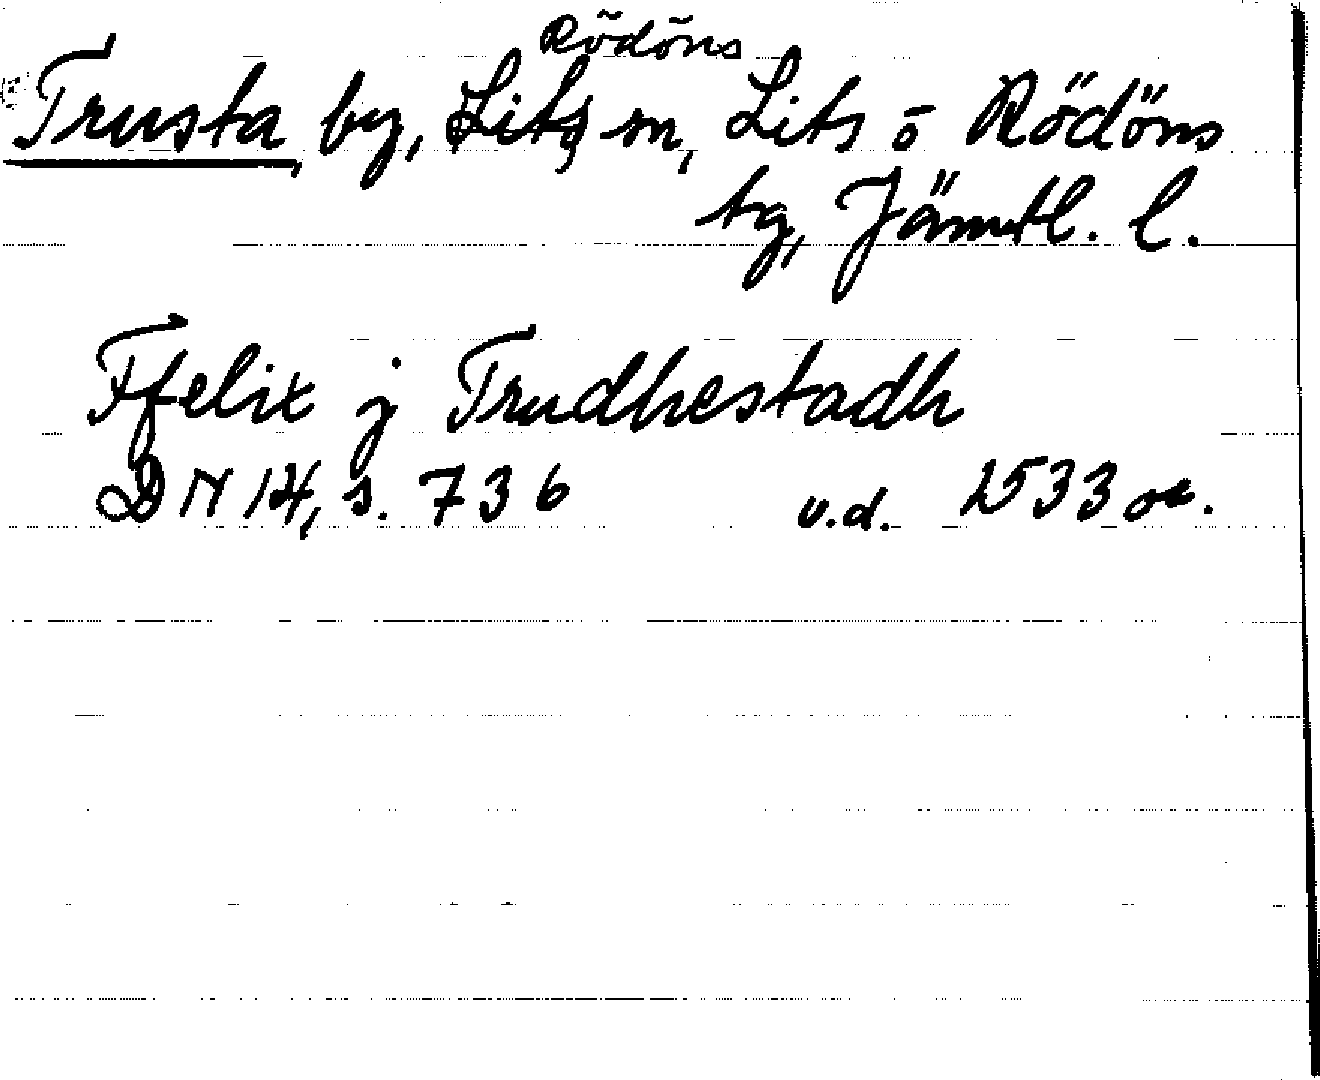 Rödöns
Trusta, by, Lits sn, Lits o Rödöns
tg, Jämtl. l.
Ffelix j Trudhestadh
DN 14, s. 736 u.d. 1533 oc.